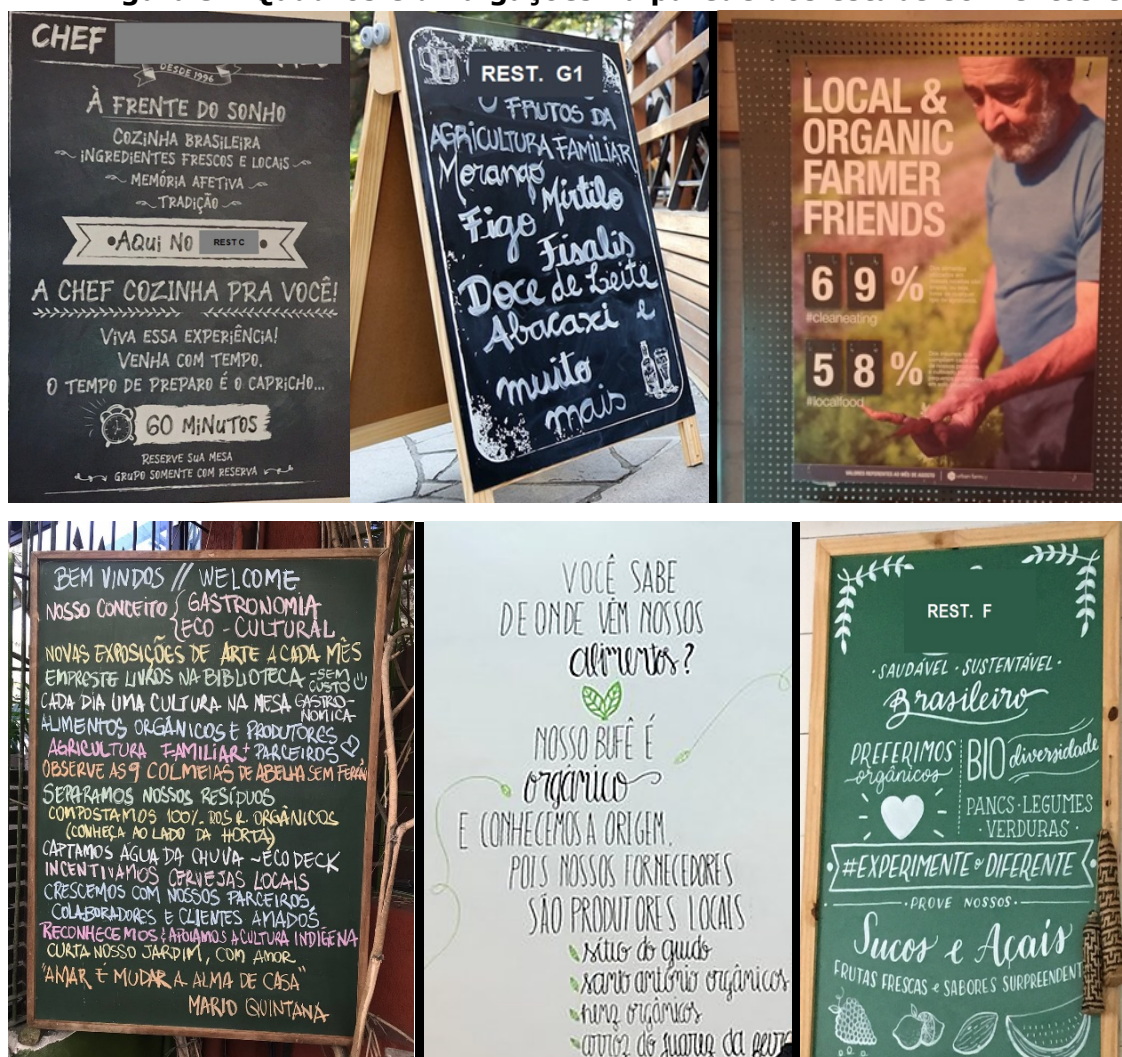 CHEF
DESDE 1996
À FRENTE DO SONHO
COZINHA BRASILEIRA
INGREDIENTES FRESCOS E LOCAIS
MEMÓRIA AFETIVA
TRADIÇÃO
AQUI NO REST C
A CHEF COZINHA PRA VOCÊ!
VIVA ESSA EXPERIÊNCIA!
VENHA COM TEMPO.
O TEMPO DE PREPARO É O CAPRICHO...
60 MINUTOS
RESERVE SUA MESA
GRUPO SOMENTE COM RESERVA
REST. G1
FRUTOS DA
AGRICULTURA FAMILIAR
Morango
Mirtilo
Figo
Fisalis
Doce de Leite
Abacaxi e
muito
mais
LOCAL &
ORGANIC
FARMER
FRIENDS
69%
#cleaneating
58%
#localfood
VALORES REFERENTES AO MÊS DE AGOSTO
BEM VINDOS // WELCOME
NOSSO CONCEITO { GASTRONOMIA
ECO-CULTURAL
NOVAS EXPOSIÇÕES DE ARTE A CADA MÊS
EMPRESTE LIVROS NA BIBLIOTECA -SEM CUSTO
CADA DIA UMA CULTURA NA MESA GASTRO-NÔMICA
ALIMENTOS ORGÂNICOS E PRODUTORES
AGRICULTURA FAMILIAR + PARCEIROS
OBSERVE AS 9 COLMEIAS DE ABELHA SEM
SEPARAMOS NOSSOS RESÍDUOS
COMPOSTAMOS 100% DOS R. ORGÂNICOS
(CONHEÇA AO LADO DA HORTA)
CAPTAMOS ÁGUA DA CHUVA - ECODECK
INCENTIVAMOS CERVEJAS LOCAIS
CRESCEMOS COM NOSSOS PARCEIROS,
COLABORADORES E CLIENTES AMADOS
RECONHECEMOS & APOIAMOS A CULTURA INDÍGENA
CURTA NOSSO JARDIM, COM AMOR
"AMAR É MUDAR A ALMA DE CASA"
MARIO QUINTANA
VOCÊ SABE
DE ONDE VÊM NOSSOS
alimentos?
NOSSO BUFÊ É
orgânico
E CONHECEMOS A ORIGEM,
POIS NOSSOS FORNECEDORES
SÃO PRODUTORES LOCAIS
sítio do guido
santo antônio orgânicos
henz orgânicos
arroz do suarez da
REST. F
· SAUDÁVEL · SUSTENTÁVEL ·
Brasileiro
PREFERIMOS
orgânicos
BIO diversidade
PANCS · LEGUMES
· VERDURAS ·
#EXPERIMENTE o DIFERENTE
· PROVE NOSSOS ·
Sucos e Açaís
FRUTAS FRESCAS e SABORES